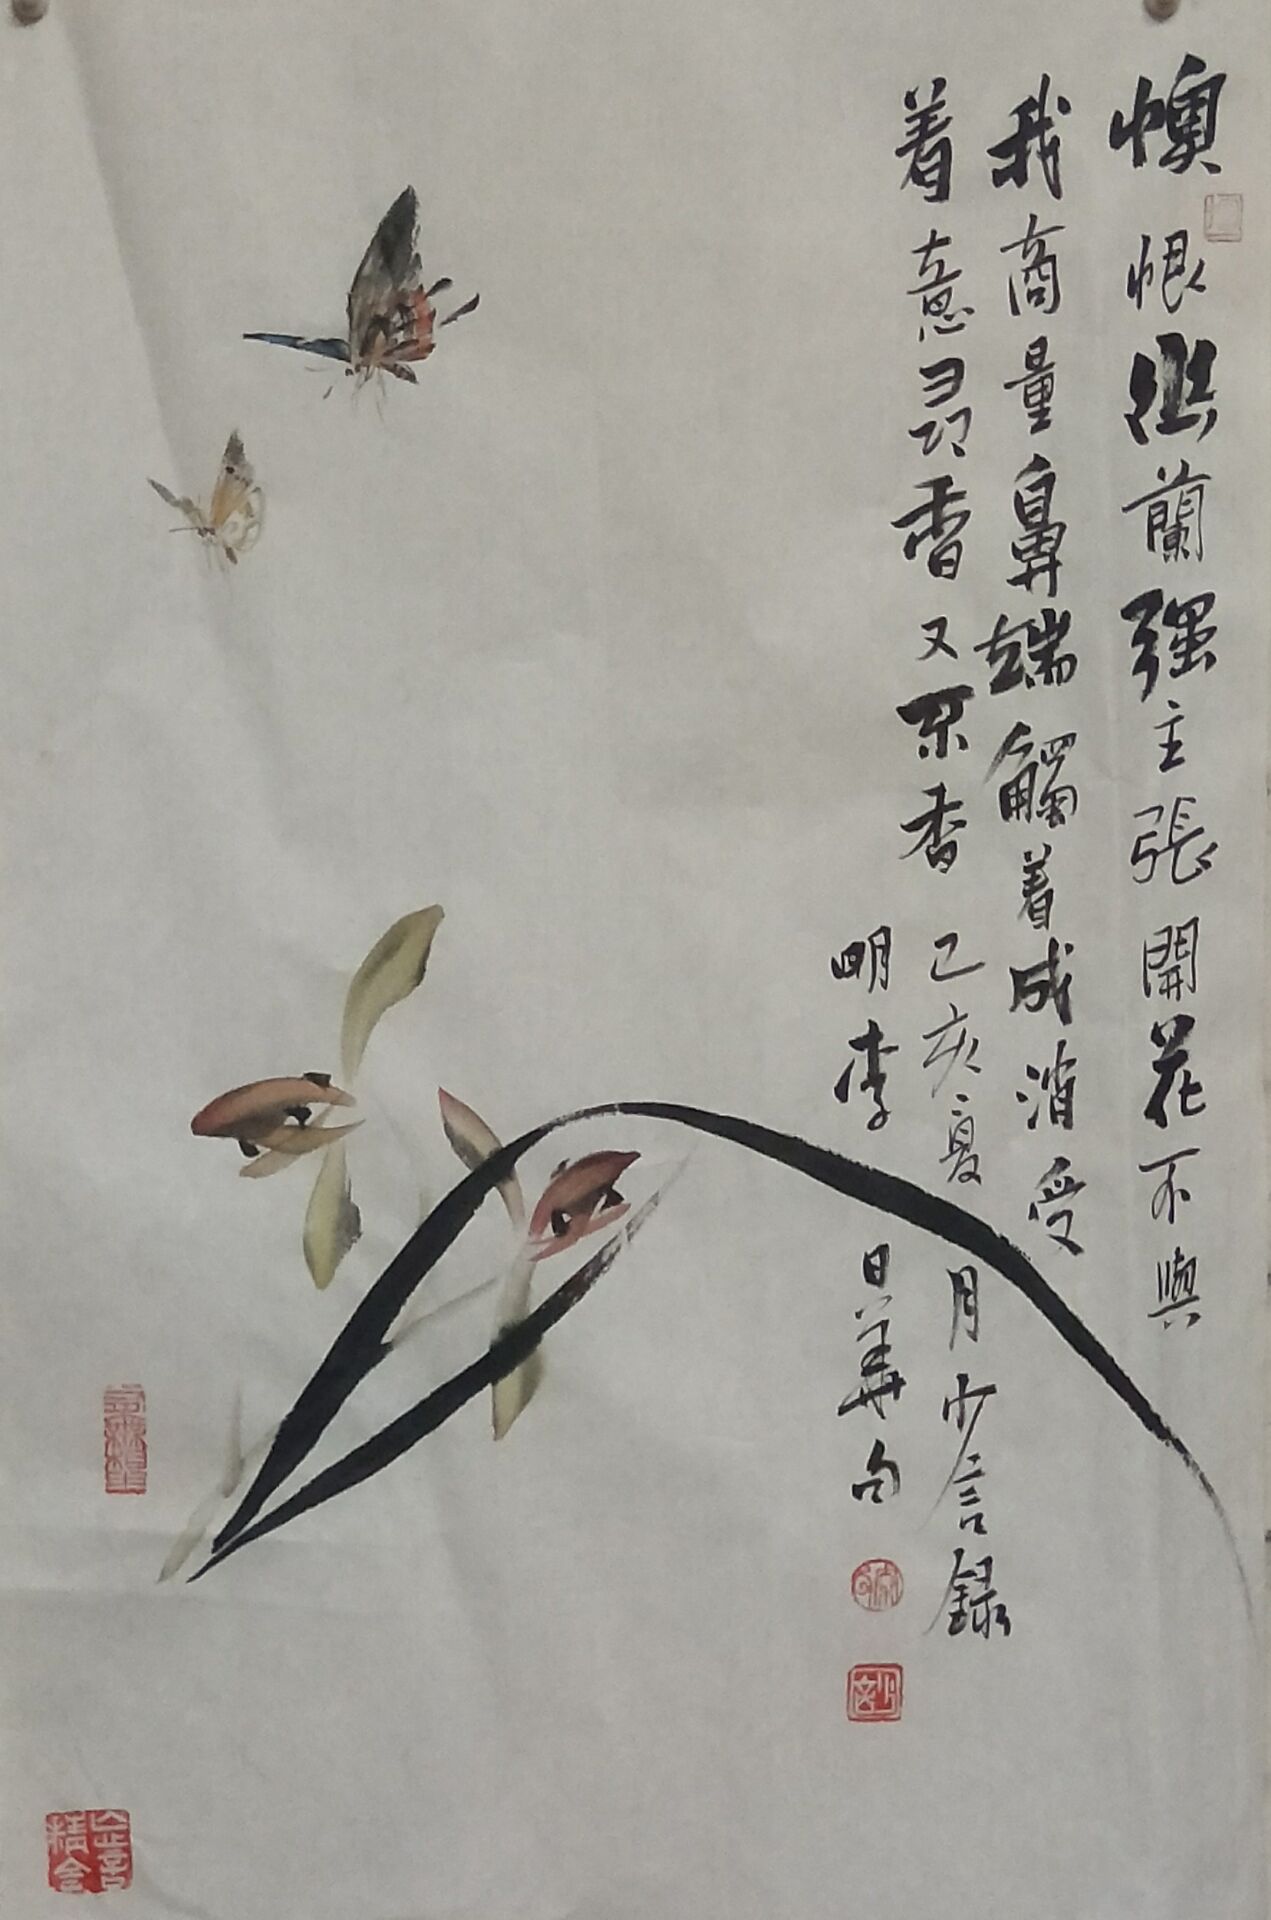 懊恨幽蘭强主張開花不與
我商量鼻端觸着成消受
着意尋香又不香己亥夏月少言錄
明李日華句